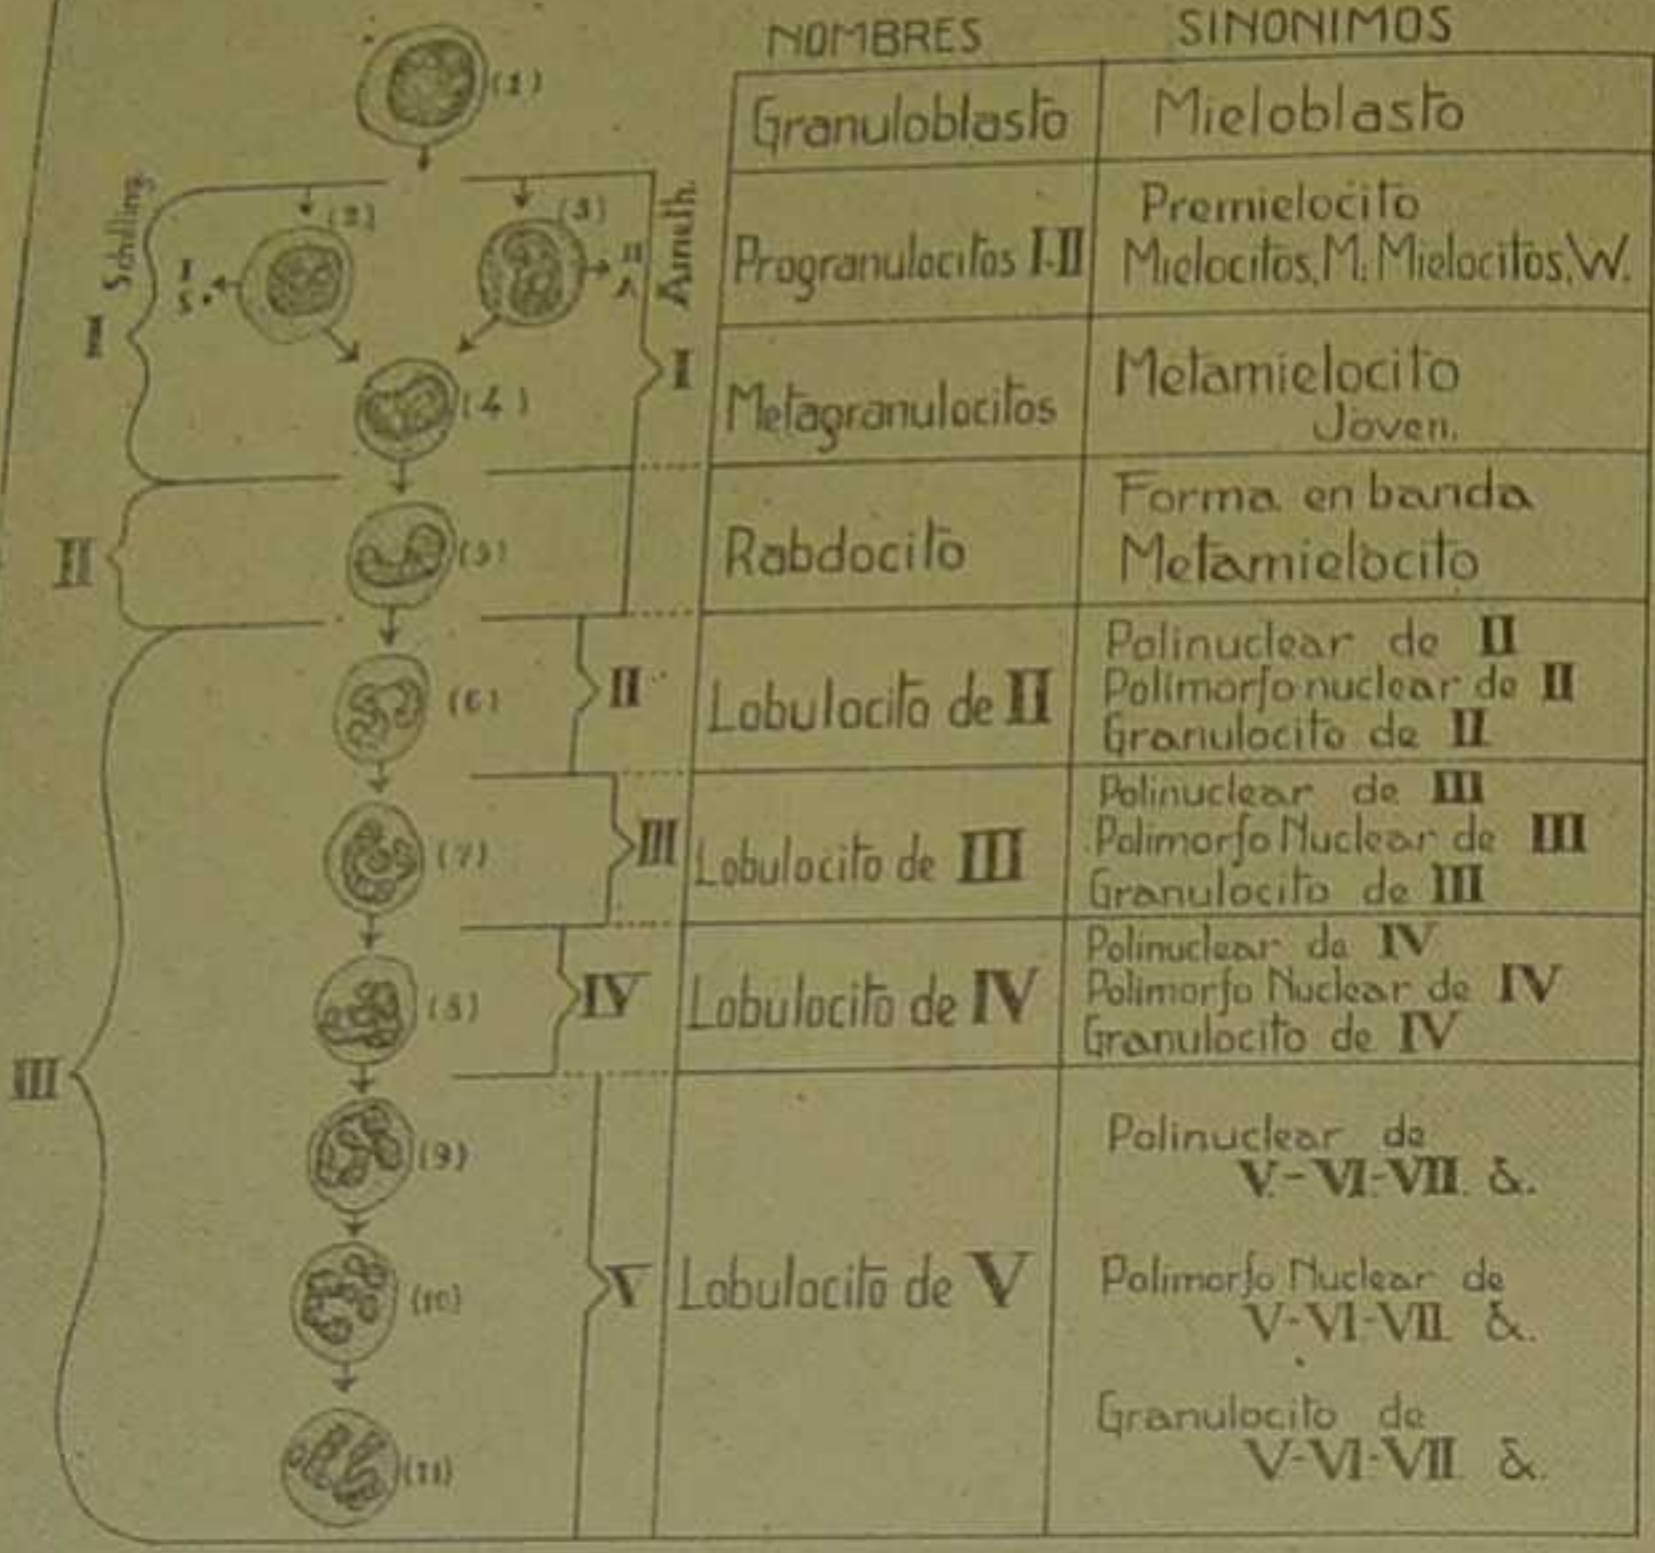 NOMBRES SINONIMOS
(1)
Granuloblasto Mieloblasto
Schilling.
Arneth.
(2) (3)
I S. II A
I
I
Progranulocitos I-II
Premielocito
Mielocitos, M. Mielocitos, W.
(4)
Metagranulocitos
Metamielocito
Joven.
II
(5)
Rabdocito
Forma en banda
Metamielocito
(6)
II
Lobulocito de II
Polinuclear de II
Polimorfonuclear de II
Granulocito de II
(7)
III
Lobulocito de III
Polinuclear de III
Polimorfo Nuclear de III
Granulocito de III
(8)
IV
Lobulocito de IV
Polinuclear de IV
Polimorfo Nuclear de IV
Granulocito de IV
III
(9)
(10)
(11)
V
Lobulocito de V
Polinuclear de
V-VI-VII &.
Polimorfo Nuclear de
V-VI-VII &.
Granulocito de
V-VI-VII &.